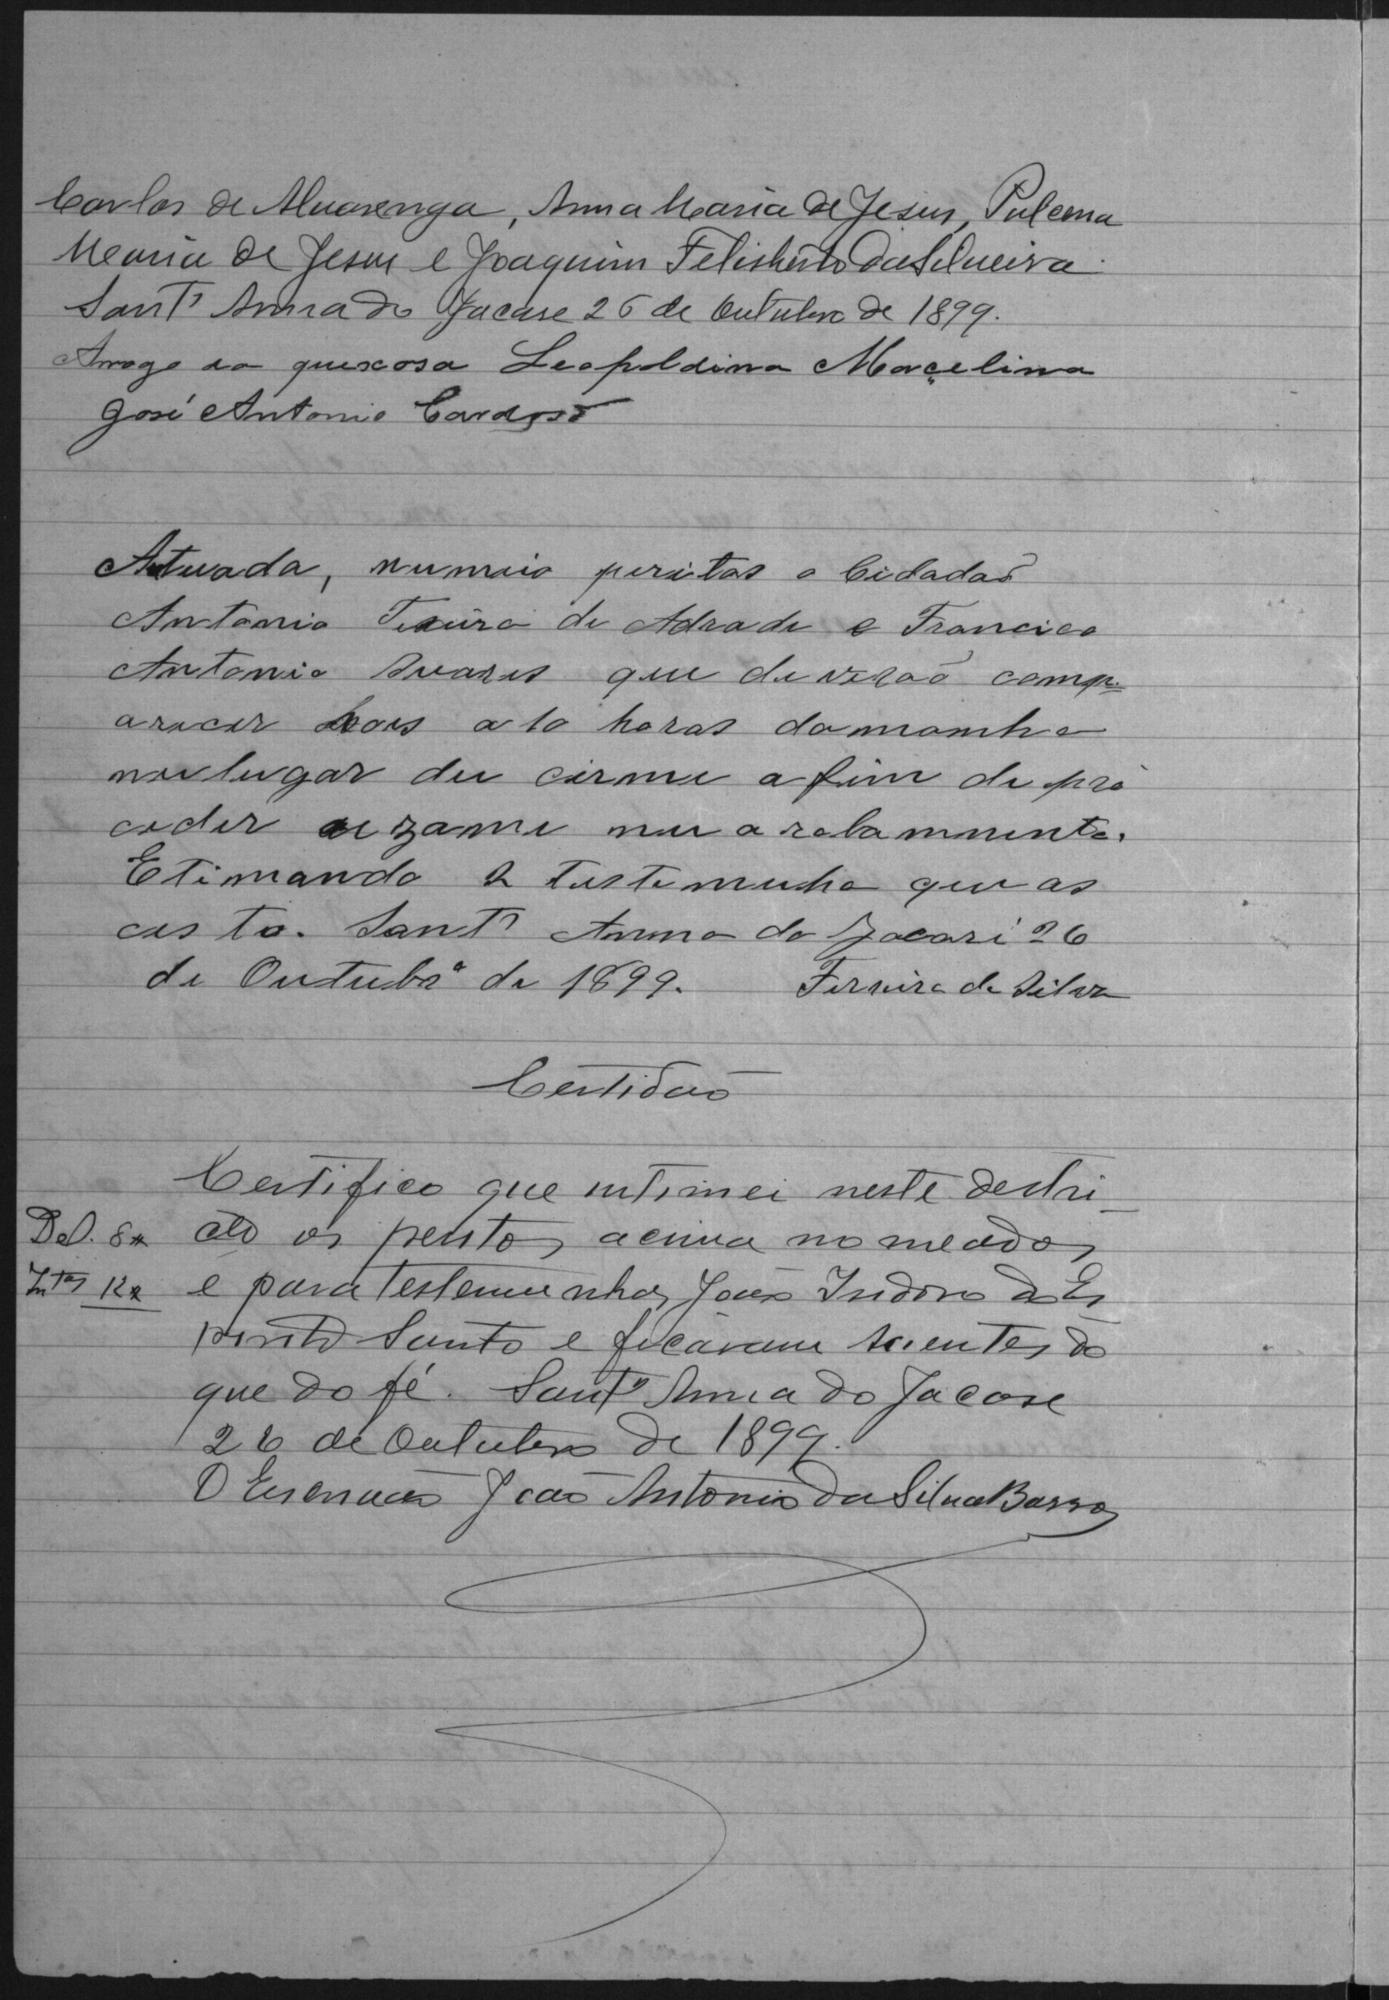 Carlos de Alvarenga, Anna Maria de Jesus, Pulcena
Maria de Jesus e Joaquim Felisberto da Silveira.
Sant' Anna do Jacare 26 de Outubro de 1899.
Arrogo da queixosa Leopoldina Marcelina
José Antonio Cardoso
Autuada, numeio peritos o Cidadaõ
Antonio de Adrade e Francico
Antonio Suares que deveraõ comp
arecer as 10 horas da manhe
no lugar du cirme a fim de pro
ceder ezame nu arebammento.
Etimando 2 testemunha que as
cista. Sant' Anna do Jacaré 26
de Outubrº de 1899. Ferreira da Silva
Certidaõ
Certifico que intimei neste destri-
Del. 8 cto os peritos acima nomeados
Int.as 12 e para testemunhas João Isidoro do Es
pirito Santo e ficaram scientes do
que do fé. Sant' Anna do Jacare
26 de Outubro de 1899.
O Escrivaõ Joaõ Antonio da Silva Barros